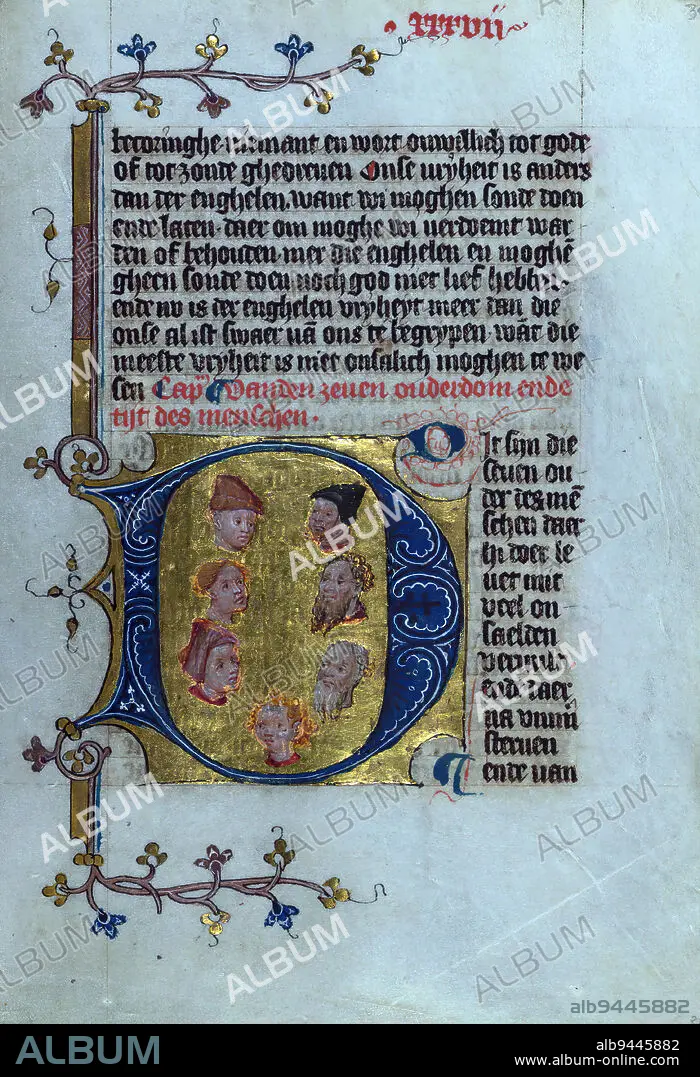 xxxvii
becoringhe niemant en wort onwillich tot gode
of tot zonde ghedreuen Onse vryheit is anders
dan der enghelen. want wi moghen sonde doen
ende laten. daer om moghe wi verdoemt war
den of behouden. mer die enghelen en moghē
gheen sonde doen noch god niet lief hebben.
ende no is der enghelen vryheyt meer dan die
onse al ist swaer uā ons te begrypen. wāt die
meeste vryheit is niet onsalich moghen te we
sen Cap Vanden zeuen ouderdom ende
tijt des menschen.
Dit sijn die
seuen ou
der des mē
schen daer
hi doer le
uet mit
veel on
saelden
ende daer
na
steruen
ende van
ALBUM
alb9445882
alb9445882
www.album-online.com